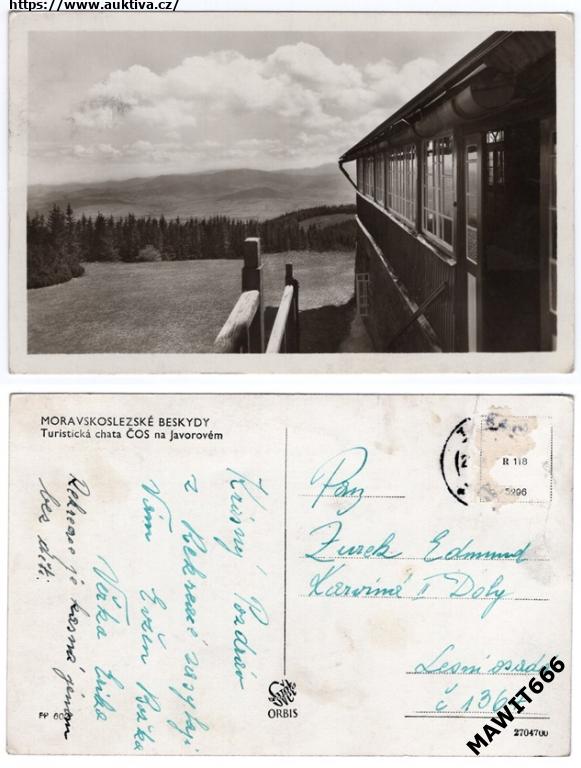 https://www.auktiva.cz/
MORAVSKOSLEZSKÉ BESKYDY
Turistická chata ČOS na Javorovém
Krásný Pozdrav
z Rekreace zasylají
Vám Evžen Baćka
Věrka Erika
Rekreace je krasna jenom
bez dětí.
R 118
5296
Pan
Zurek Edmund
Karviná II Doly
Lesní osada
č 136
ORBIS
FP 60
2704700
MAWIT666